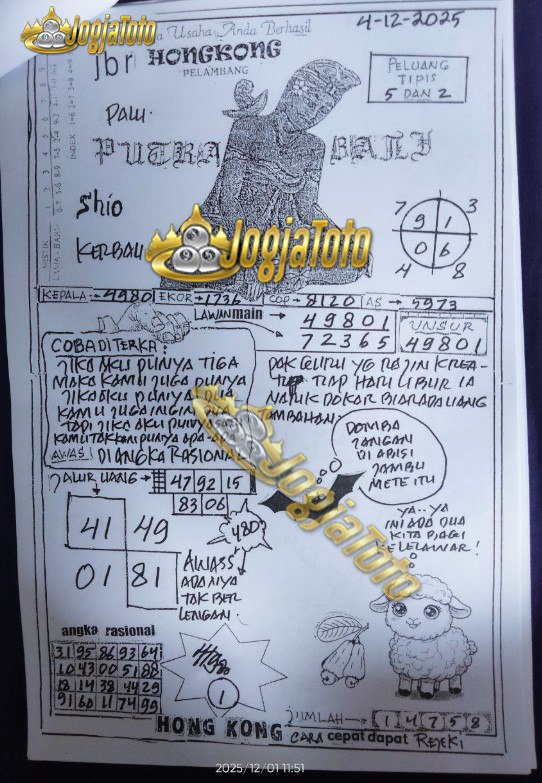 JogjaToto
Usaha Anda Berhasil
4-12-2025
HONGKONG
PELAMBANG
PELUANG
TIPIS
5 DAN 2
PALU.
PUTRA BALI
Shio
KERBAU
7 3
9 1
0 6
4 8
JogjaToto
KEPALA → 4980 EKOR → 1736 COP → 8120 AS → 5973
LAWAN main → 49801
72365
UNSUR
49801
COBA DITERKA:
JIKA AKU PUNYA TIGA
MAKA KAMU JUGA PUNYA
JIKA AKU PUNYA DUA
KAMU JUGA INGIN
TAPI JIKA AKU PUNYA
KAMU TAK PUNYA APA-APA
AWAS! DI ANGKA RASIONAL
PAK GURU YG RAJIN KREA-
TIF TIAP HARI LIBUR IA
NARIK DOKAR BIAR ADA UANG
TAMBAHAN.
DOMBA
JANGAN
DI ABISI
JAMBU
METE ITU
JALUR UANG → 47 92 15
83 06
480
41 49
01 81
AWASS
ADANYA
TAK BER
LENGAN.
YA..YA
INI ADA DUA
KITA BAGI
KELELAWAR!
JogjaToto
angka rasional
31 95 86 93 64
10 43 00 51 88
18 14 38 44 29
91 60 11 74 99
1
JUMLAH → 1 4 7 5 8
HONG KONG CARA cepat dapat REJEKI
2025/12/01 11:51